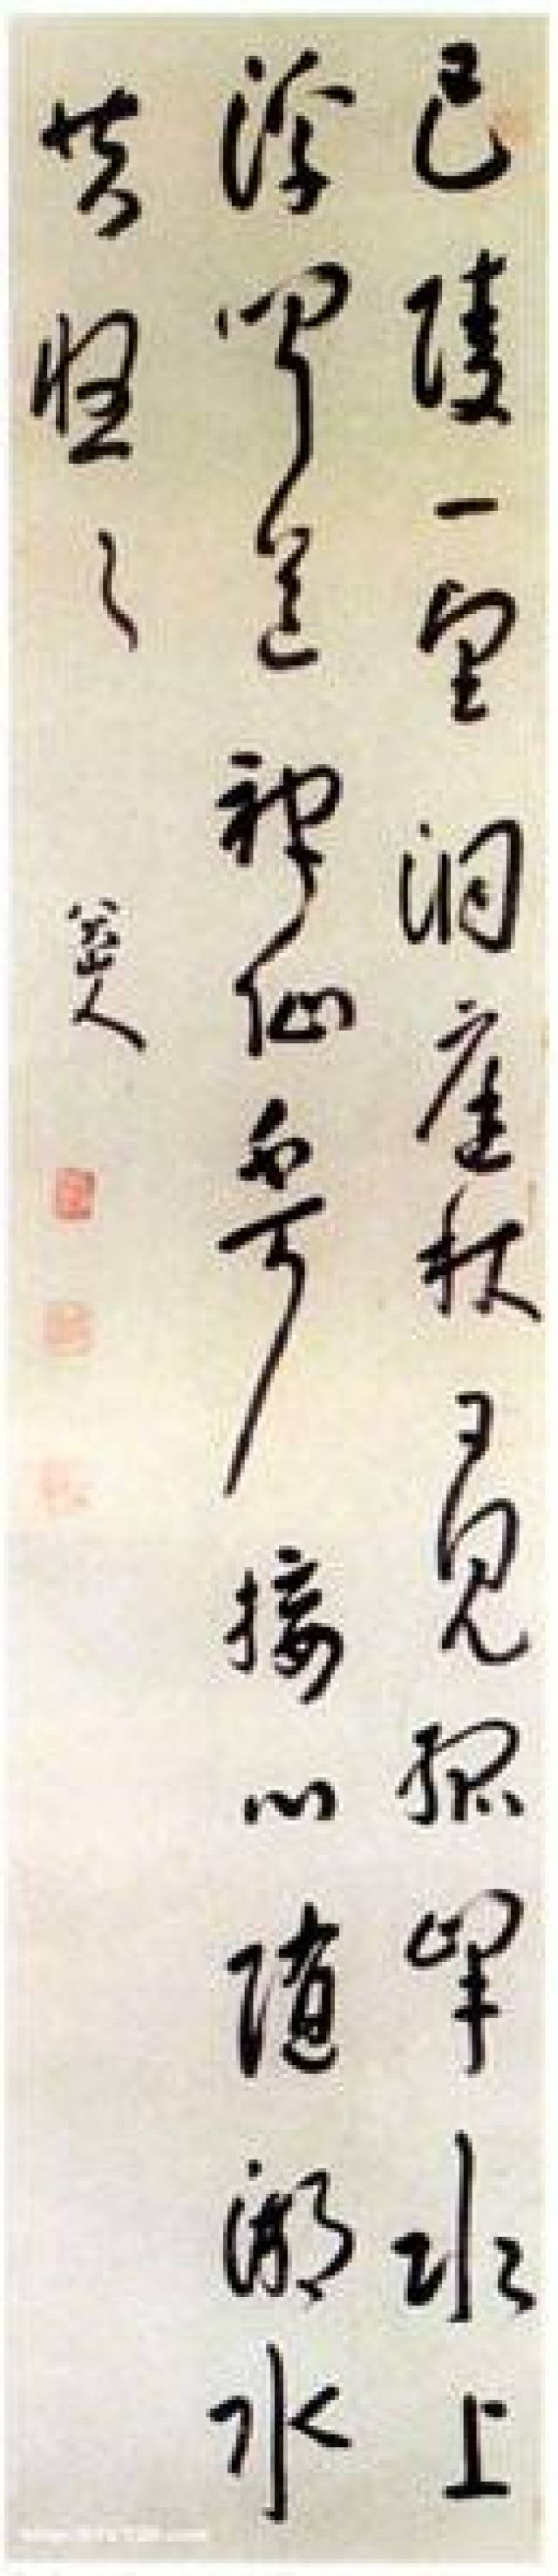 巴陵一望洞庭秋日見孤峯水上
浮聞道神仙不可接心隨湖水
共悠々 八大山人